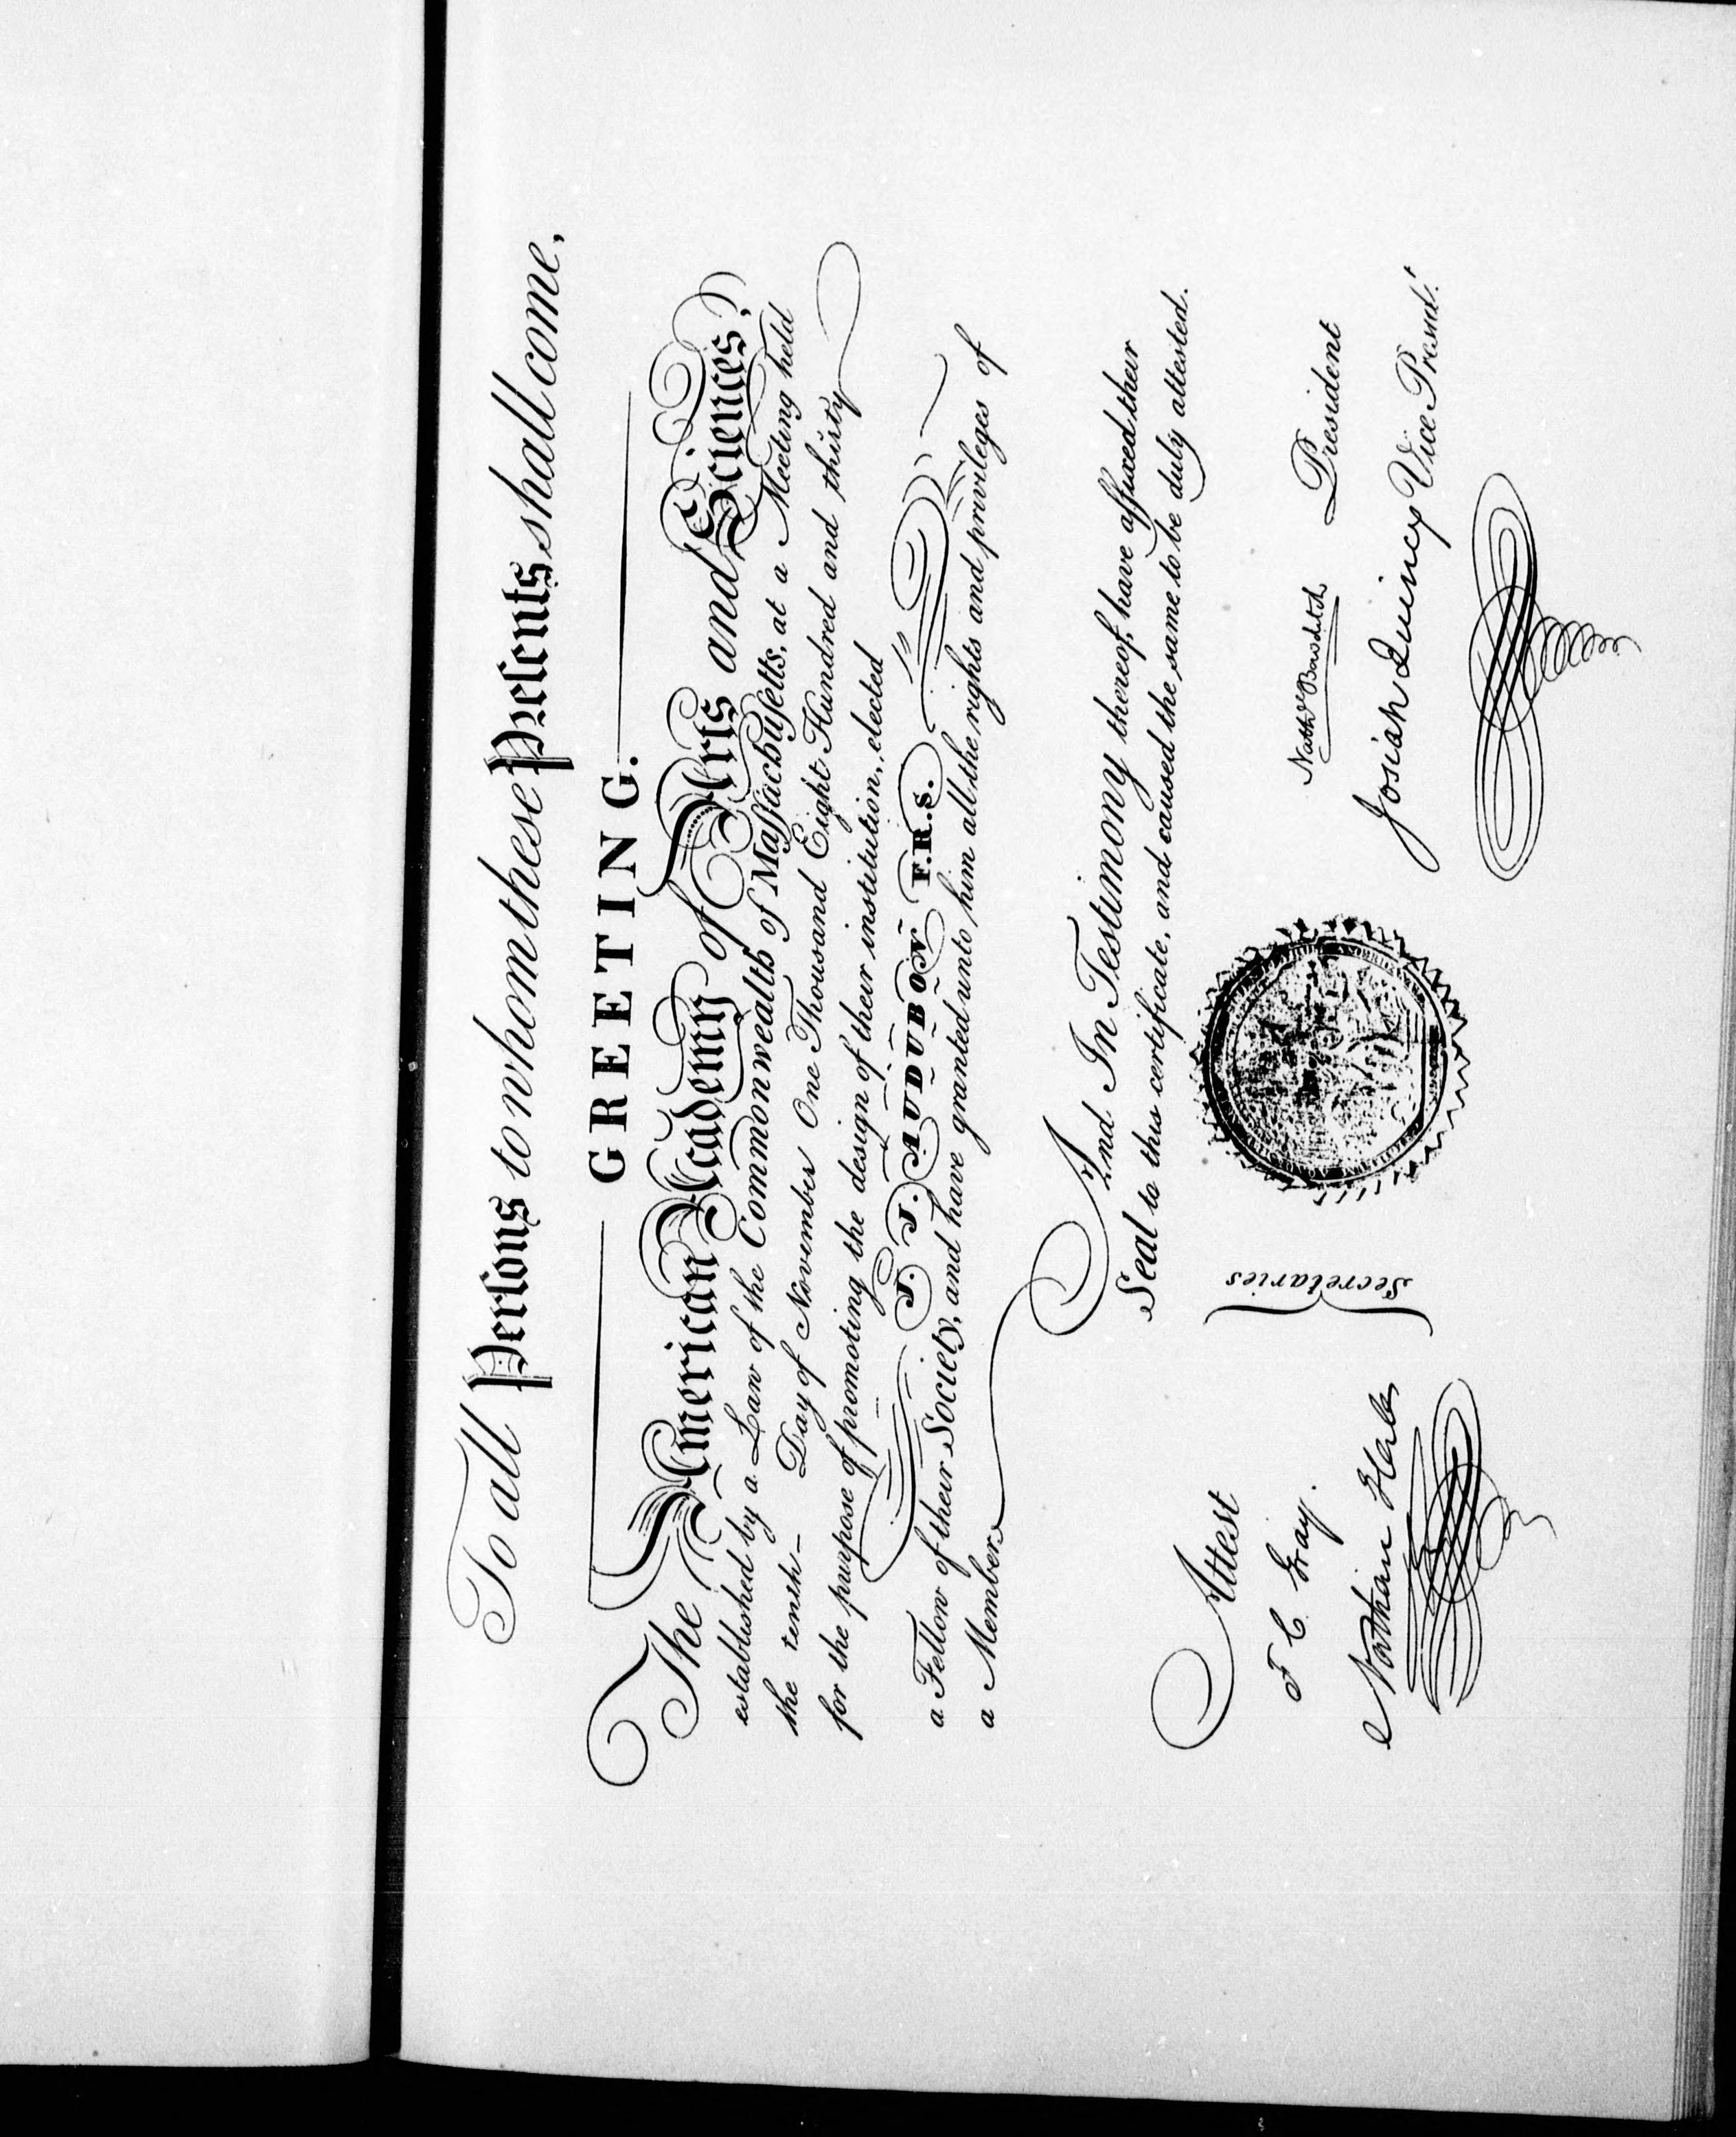 To all Persons to whom these Presents shall come,
GREETING.
The American Academy of Arts and Sciences,
established by a Law of the Commonwealth of Maſſachuſetts, at a Meeting held
the tenth Day of November One Thousand Eight Hundred and thirty
for the purpose of promoting the design of their institution, elected
J. J. AUDUBON F.R.S.
a Fellow of their Society, and have granted unto him all the rights and privileges of
a Member.
And In Testimony thereof, have affixed their
Seal to this certificate, and caused the same to be duly attested.
Attest
F C Gray.
Nathan Hale
Secretaries
Nathl Bowditch President
Josiah Quincy Vice Presidt.